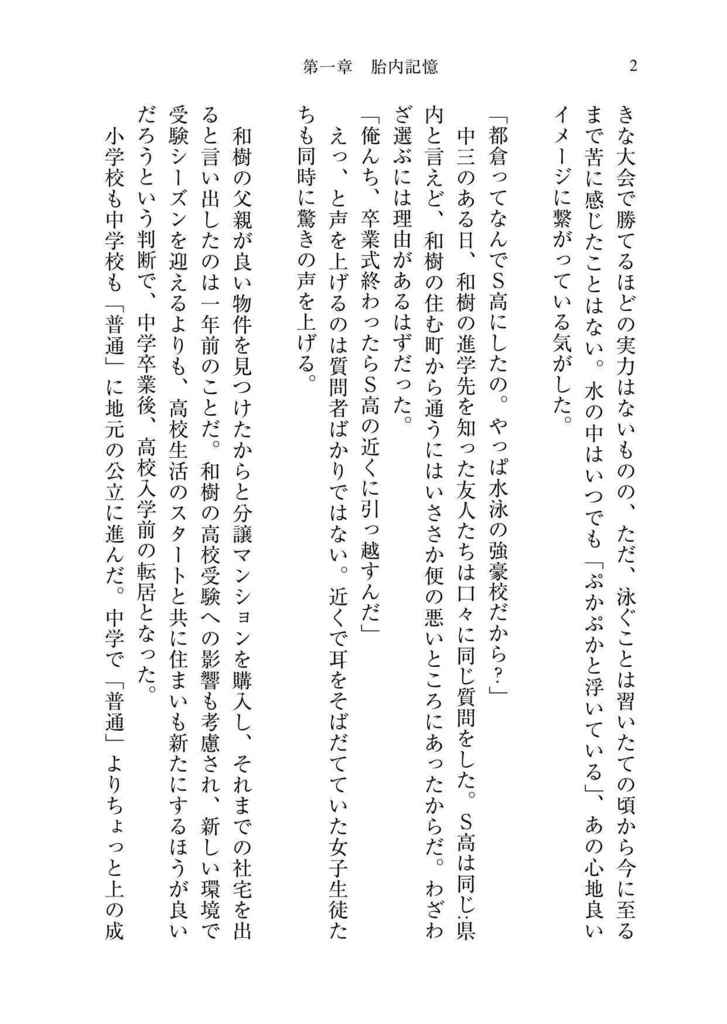 第一章　胎内記憶
2
きな大会で勝てるほどの実力はないものの、ただ、泳ぐことは習いたての頃から今に至る
まで苦に感じたことはない。水の中はいつでも「ぷかぷかと浮いている」、あの心地良い
イメージに繋がっている気がした。
「都倉ってなんでS高にしたの。やっぱ水泳の強豪校だから？」
中三のある日、和樹の進学先を知った友人たちは口々に同じ質問をした。S高は同じ県
内と言えど、和樹の住む町から通うにはいささか便の悪いところにあったからだ。わざわ
ざ選ぶには理由があるはずだった。
「俺んち、卒業式終わったらS高の近くに引っ越すんだ」
えっ、と声を上げるのは質問者ばかりではない。近くで耳をそばだてていた女子生徒た
ちも同時に驚きの声を上げる。
和樹の父親が良い物件を見つけたからと分譲マンションを購入し、それまでの社宅を出
ると言い出したのは一年前のことだ。和樹の高校受験への影響も考慮され、新しい環境で
受験シーズンを迎えるよりも、高校生活のスタートと共に住まいも新たにするほうが良い
だろうという判断で、中学卒業後、高校入学前の転居となった。
小学校も中学校も「普通」に地元の公立に進んだ。中学で「普通」よりちょっと上の成